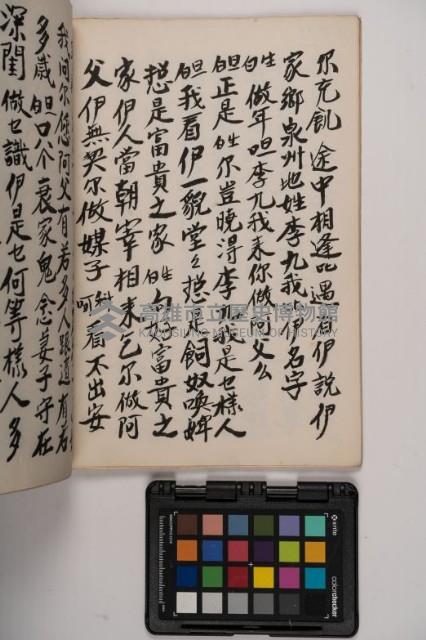 尔充飢途中相逢所遇有伊說伊
家鄉泉州地姓李九我是伊名字
生做年旦李九我来你做阿父么
旦正是生尔豈曉得李九我是乜樣人
旦我看伊一貌堂之揔是飼奴喚婢
揔是富貴之家生句按富貴之
家伊人當朝宰相来乞尔做阿
父伊無契尔做媒子 看不出安
我问尔您阿父有若多人跟適有若
多歲旦口八个衰家鬼念妾子守在
深闺做乜識伊是乜何等樣人多
高雄市立歷史博物館
KAOHSIUNG MUSEUM OF HISTORY
x-rite
colorchecker